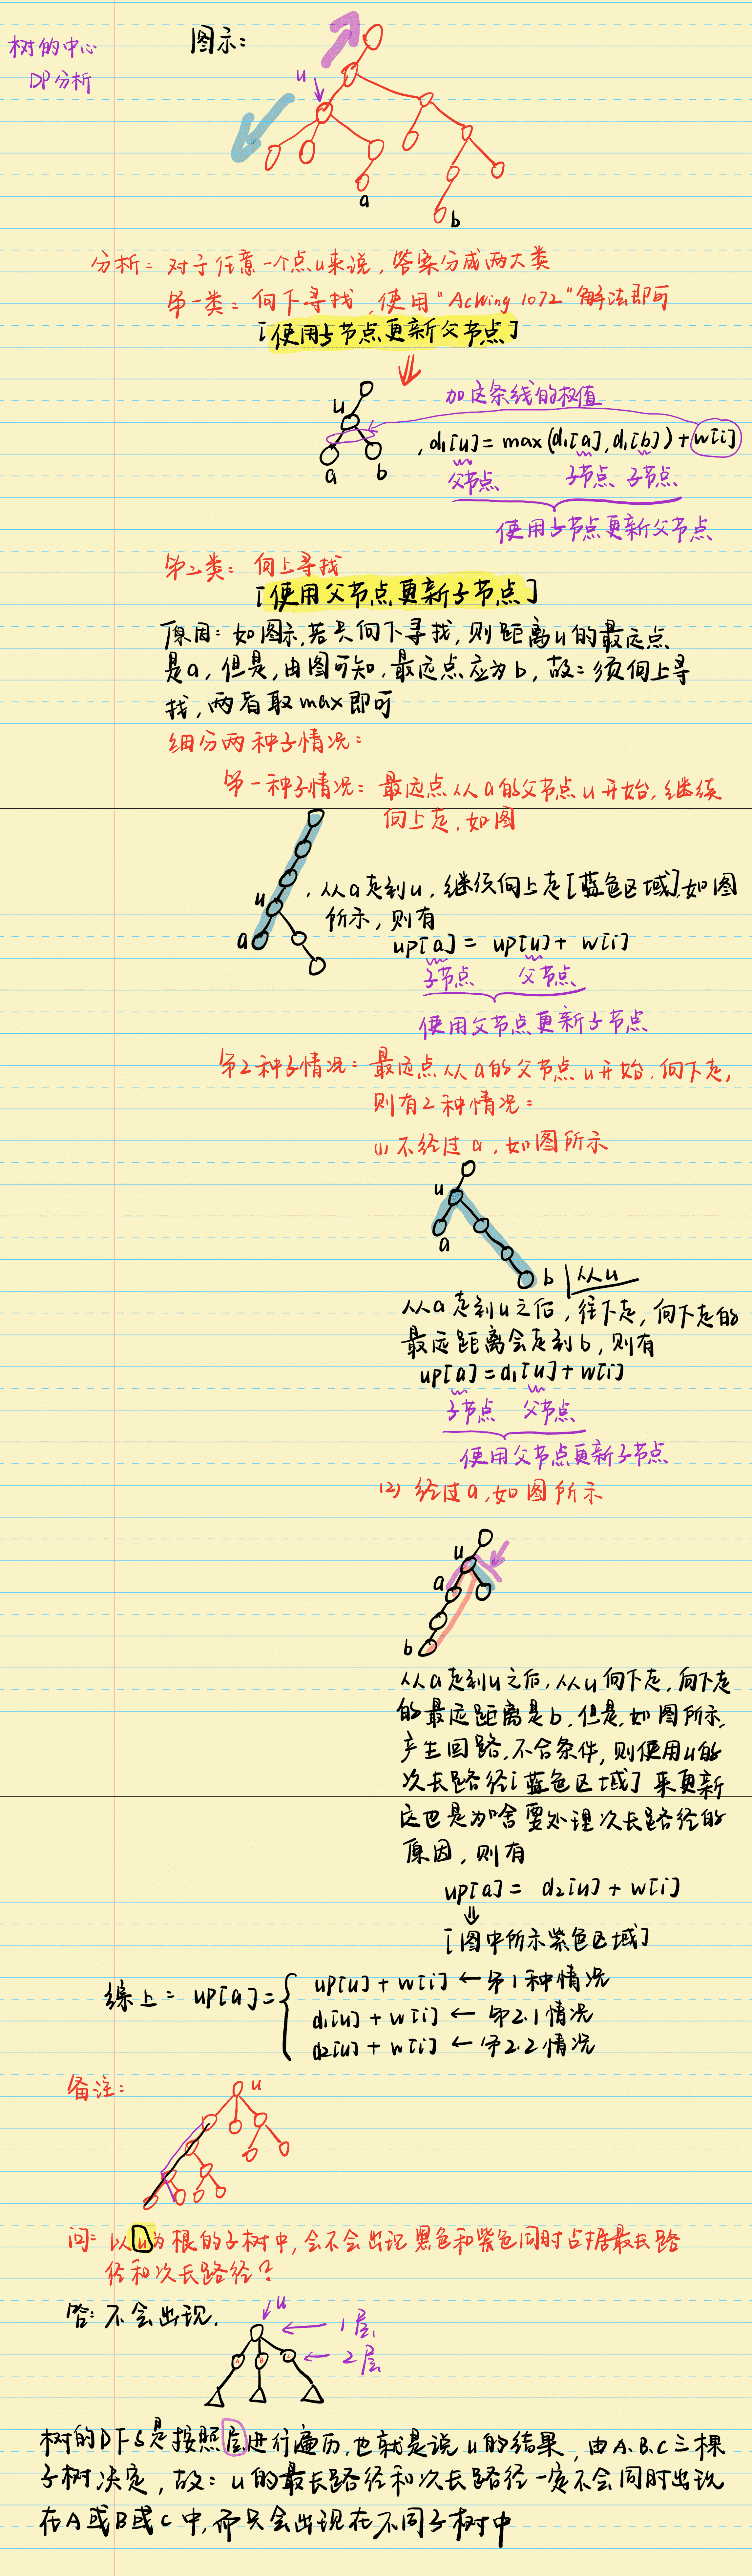 树的中心
DP分析
图示:
u
a
b
分析: 对于任意一个点u来说, 答案分成两大类
第一类: 向下寻找, 使用"AcWing 1072"解法即可
[使用子节点更新父节点]
加这条线的权值
u
a
b
, d1[u] = max(d1[a], d1[b]) + w[i]
父节点 子节点 子节点
使用子节点更新父节点
第二类: 向上寻找
[使用父节点更新子节点]
原因: 如图示, 若只向下寻找, 则距离u的最远点
是a, 但是, 由图可知, 最远点应为b, 故: 须向上寻
找, 两者取max即可
细分两种子情况:
第一种子情况: 最远点从a的父节点u开始, 继续
向上走, 如图
u
a
, 从a走到u, 继续向上走[蓝色区域], 如图
所示, 则有
up[a] = up[u] + w[i]
子节点 父节点
使用父节点更新子节点
第2种子情况: 最远点从a的父节点u开始, 向下走,
则有2种情况:
(1) 不经过a, 如图所示
u
a
b
从u
从a走到u之后, 往下走, 向下走的
最远距离会走到b, 则有
up[a] = d1[u] + w[i]
子节点 父节点
使用父节点更新子节点
(2) 经过a, 如图所示
u
a
b
从a走到u之后, 从u向下走, 向下走
的最远距离是b, 但是, 如图所示,
产生回路, 不合条件, 则使用u的
次长路径[蓝色区域] 来更新
这也是为啥要处理次长路径的
原因, 则有
up[a] = d2[u] + w[i]
⇓
[图中所示紫色区域]
综上: up[a] = {
up[u] + w[i] ← 第1种情况
d1[u] + w[i] ← 第2.1情况
d2[u] + w[i] ← 第2.2情况
备注:
u
问: 以u为根的子树中, 会不会出现黑色和紫色同时占据最长路
径和次长路径?
答: 不会出现.
u
← 1层
← 2层
树的DFS是按照层进行遍历, 也就是说u的结果, 由A.B.C三棵
子树决定, 故: u的最长路径和次长路径一定不会同时出现
在A或B或C中, 而只会出现在不同子树中